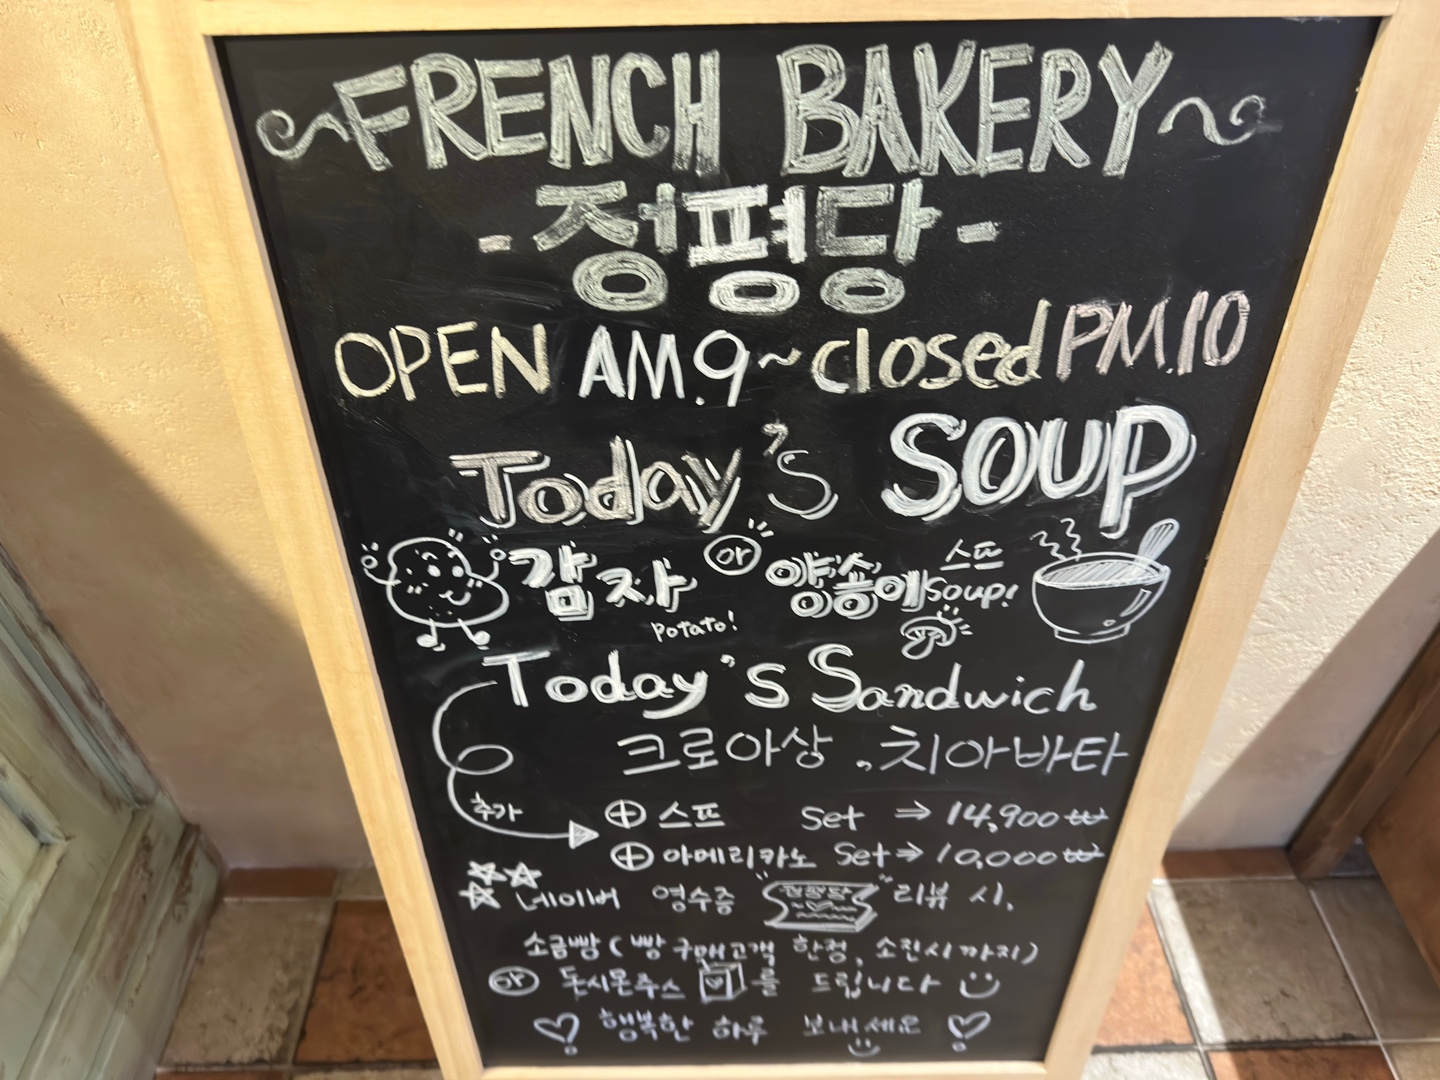 FRENCH BAKERY
-정평당-
OPEN AM.9~closed PM.10
Today's SOUP
감자 or 양송이 스프
potato! soup!
Today's Sandwich
크로아상, 치아바타
추가 ⊕ 스프 Set ⇒ 14,900₩
⊕ 아메리카노 Set ⇒ 10,000₩
네이버 영수증 "정평당" 리뷰 시,
소금빵 (빵 구매고객 한정, 소진시까지)
or 주스 를 드립니다
행복한 하루 보내세요